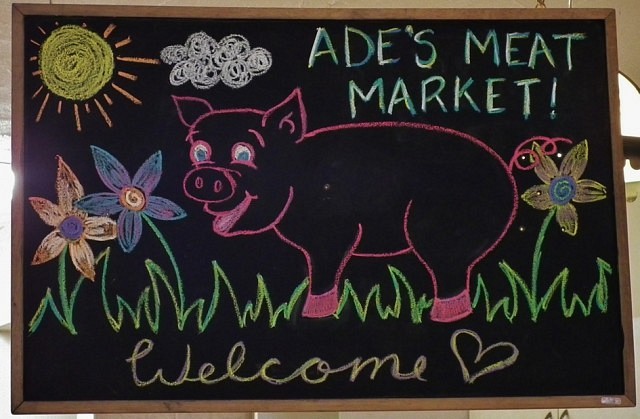 ADE'S MEAT
MARKET!
Welcome